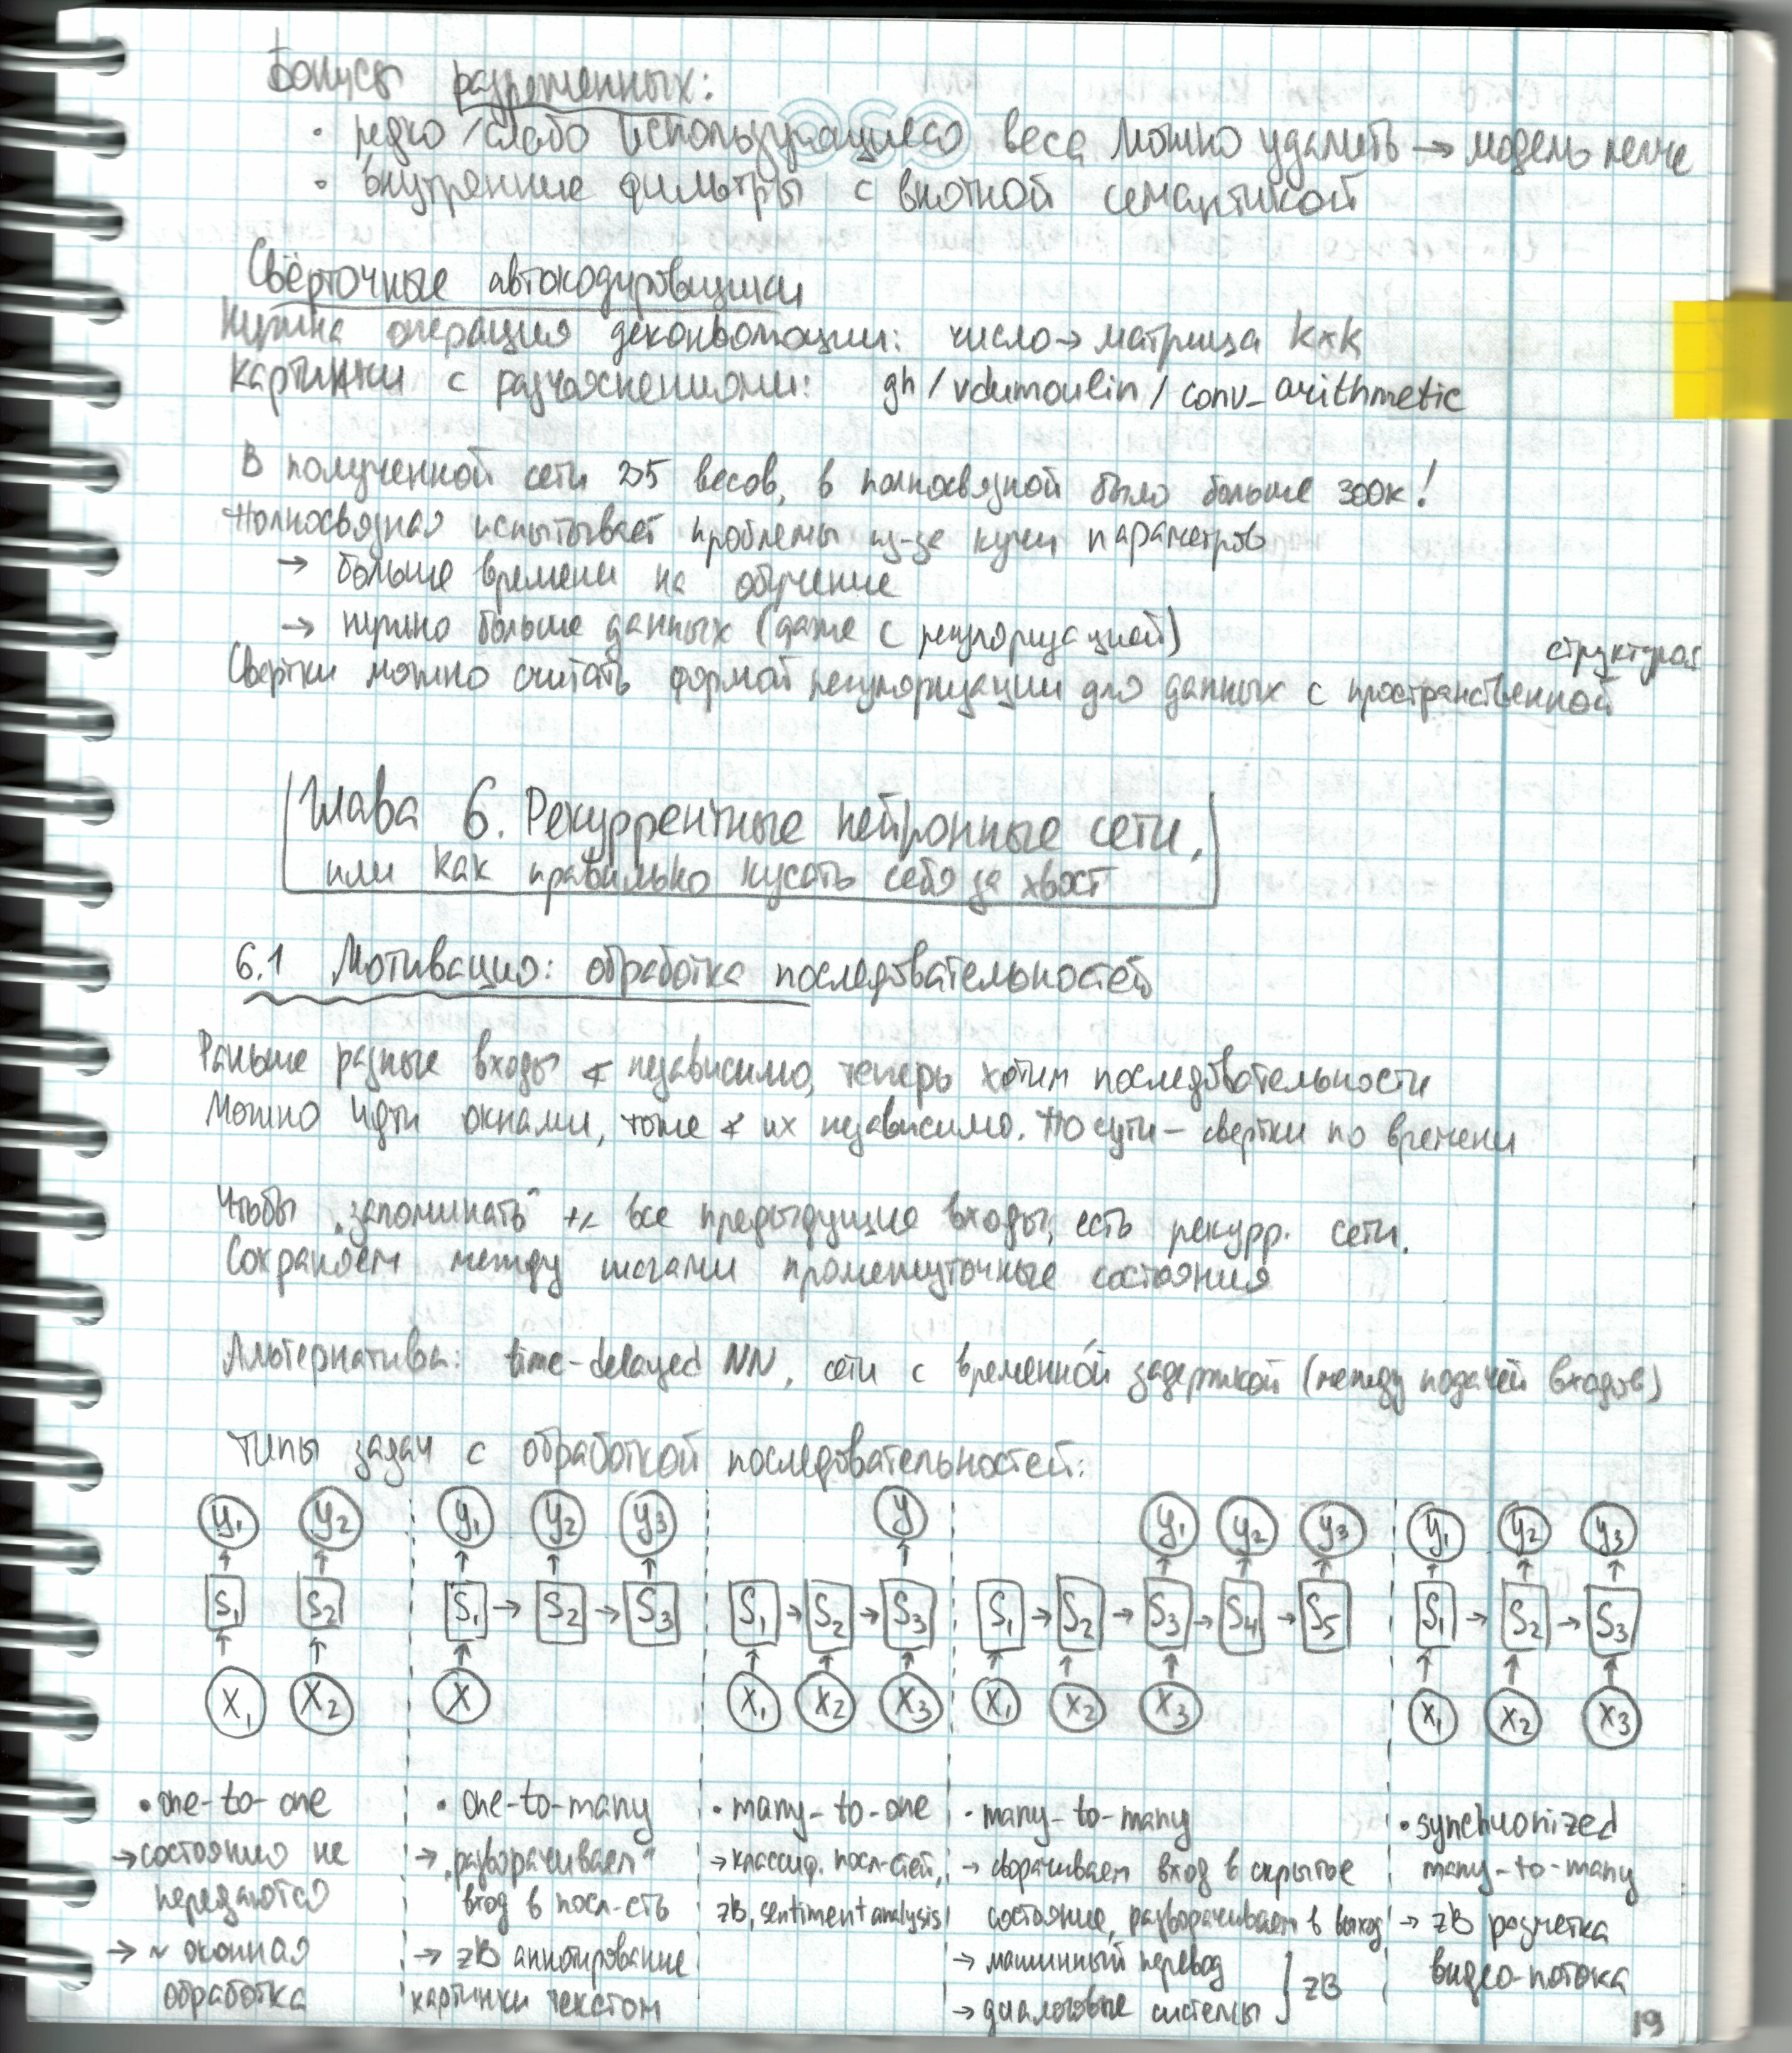 Бонусы разреженных:
• редко/слабо использующиеся веса можно удалить → модель легче
• внутренние фильтры с внятной семантикой
Свёрточные автокодировщики
Нужна операция деконволюции: число → матрица k×k
Картинки с разъяснениями: gh/vdumoulin/conv_arithmetic
В полученной сети 235 весов, в полносвязной было больше 300к!
Полносвязная испытывает проблемы из-за кучи параметров
→ больше времени на обучение
→ нужно больше данных (даже с регуляризацией)
Свертки можно считать формой регуляризации для данных с пространственной
структурой
Глава 6. Рекуррентные нейронные сети,
или как правильно кусать себя за хвост
6.1 Мотивация: обработка последовательностей
Раньше разные входы ∢ независимо, теперь хотим последовательности
Можно идти окнами, тоже ∢ их независимо. По сути – свертки по времени
Чтобы „запоминать“ все предыдущие входы, есть рекурр. сети.
Сохраняем между шагами промежуточные состояния
Альтернатива: time-delayed NN, сети с временно́й задержкой (между подачей входов)
Типы задач с обработкой последовательностей:
y₁ y₂ y₁ y₂ y₃ y y₁ y₂ y₃ y₁ y₂ y₃
S₁ S₂ S₁ → S₂ → S₃ S₁ → S₂ → S₃ S₁ → S₂ → S₃ → S₄ → S₅ S₁ → S₂ → S₃
x₁ x₂ x x₁ x₂ x₃ x₁ x₂ x₃ x₁ x₂ x₃
• one-to-one
→ состояния не
передаются
→ ~ оконная
обработка
• one-to-many
→ „разворачиваем“
вход в посл-сть
→ zB аннотирование
картинки текстом
• many-to-one
→ классиф. посл-стей,
zB, sentiment analysis
• many-to-many
→ сворачиваем вход в скрытое
состояние, разворачиваем в выход
→ машинный перевод
→ диалоговые системы } zB
• synchronized
many-to-many
→ zB разметка
видео-потока
19